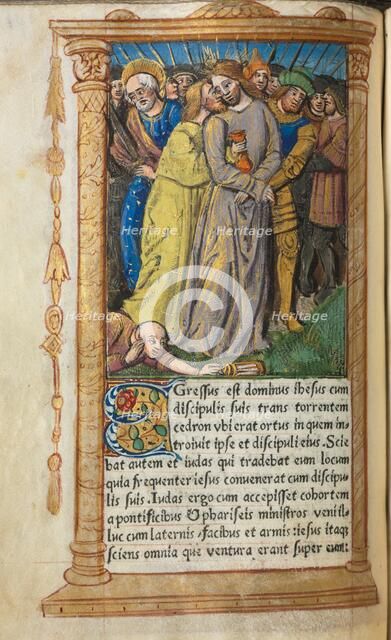 Heritage Heritage
Heritage
C
Heritage Heritage
EGressus est dominus ihesus cum
discipulis suis trans torrentem
cedron vbi erat ortus in quem in
troiuit ipse et discipuli eius. Scie
bat autem et iudas qui tradebat eum locum
quia frequenter iesus conuenerat cum discipu
lis suis. Iudas ergo cum accepisset cohortem
a pontificibus & phariseis ministros venit il
luc cum laternis, facibus et armis: iesus itaq;
sciens omnia que ventura erant super eum: